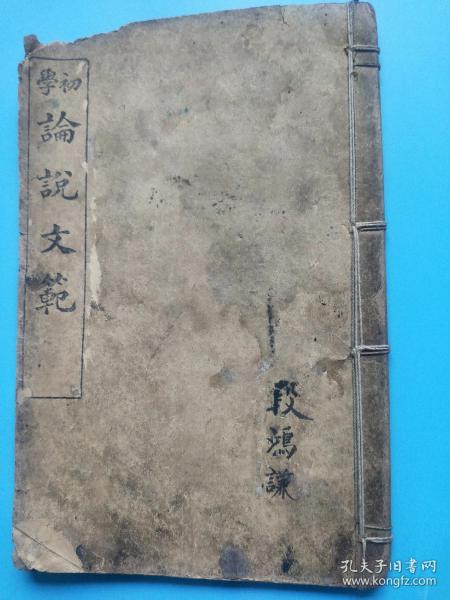 初學
論說文範
段鴻謙
孔夫子旧书网
www.kongfz.com